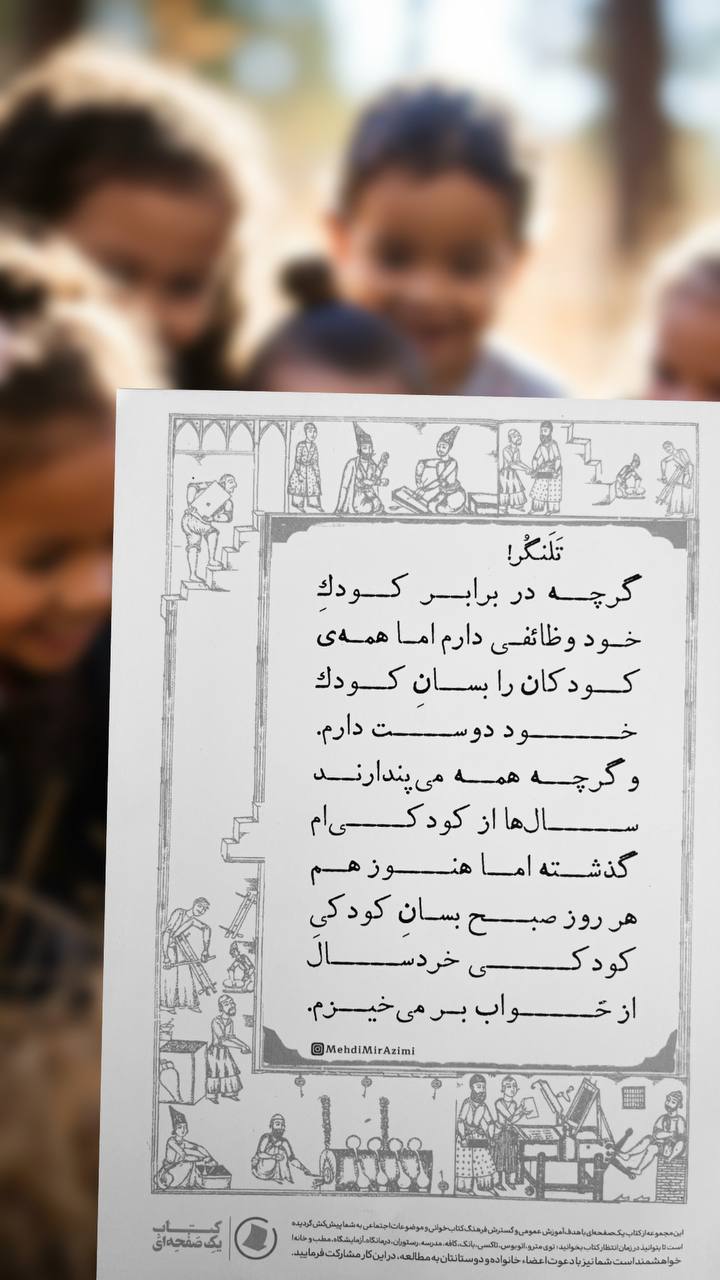 تَلَنگُر!
گرچه در برابر کودكِ
خود وظائفی دارم اما همه‌ی
کودکان را بسانِ کودك
خود دوست دارم.
و گرچه همه می‌پندارند
سال‌ها از کودکی‌ام
گذشته اما هنوز هم
هر روز صبح بسانِ کودکیِ
کودکی خردسال
از خواب بر می‌خیزم.
MehdiMirAzimi
این مجموعه از کتاب یک صفحه‌ای با هدف آموزش عمومی و گسترش فرهنگ کتاب‌خوانی و موضوعات اجتماعی به شما پیش‌کش گردیده
است تا بتوانید در زمان انتظار کتاب بخوانید؛ توی مترو، اتوبوس، تاکسی، بانک، کافه، مدرسه، رستوران، درمانگاه، آزمایشگاه، مطب و خانه!
خواهشمند است شما نیز با دعوت اعضاء خانواده و دوستانتان به مطالعه، در این کار مشارکت فرمایید.
کتاب
یک صَفحِه‌ای